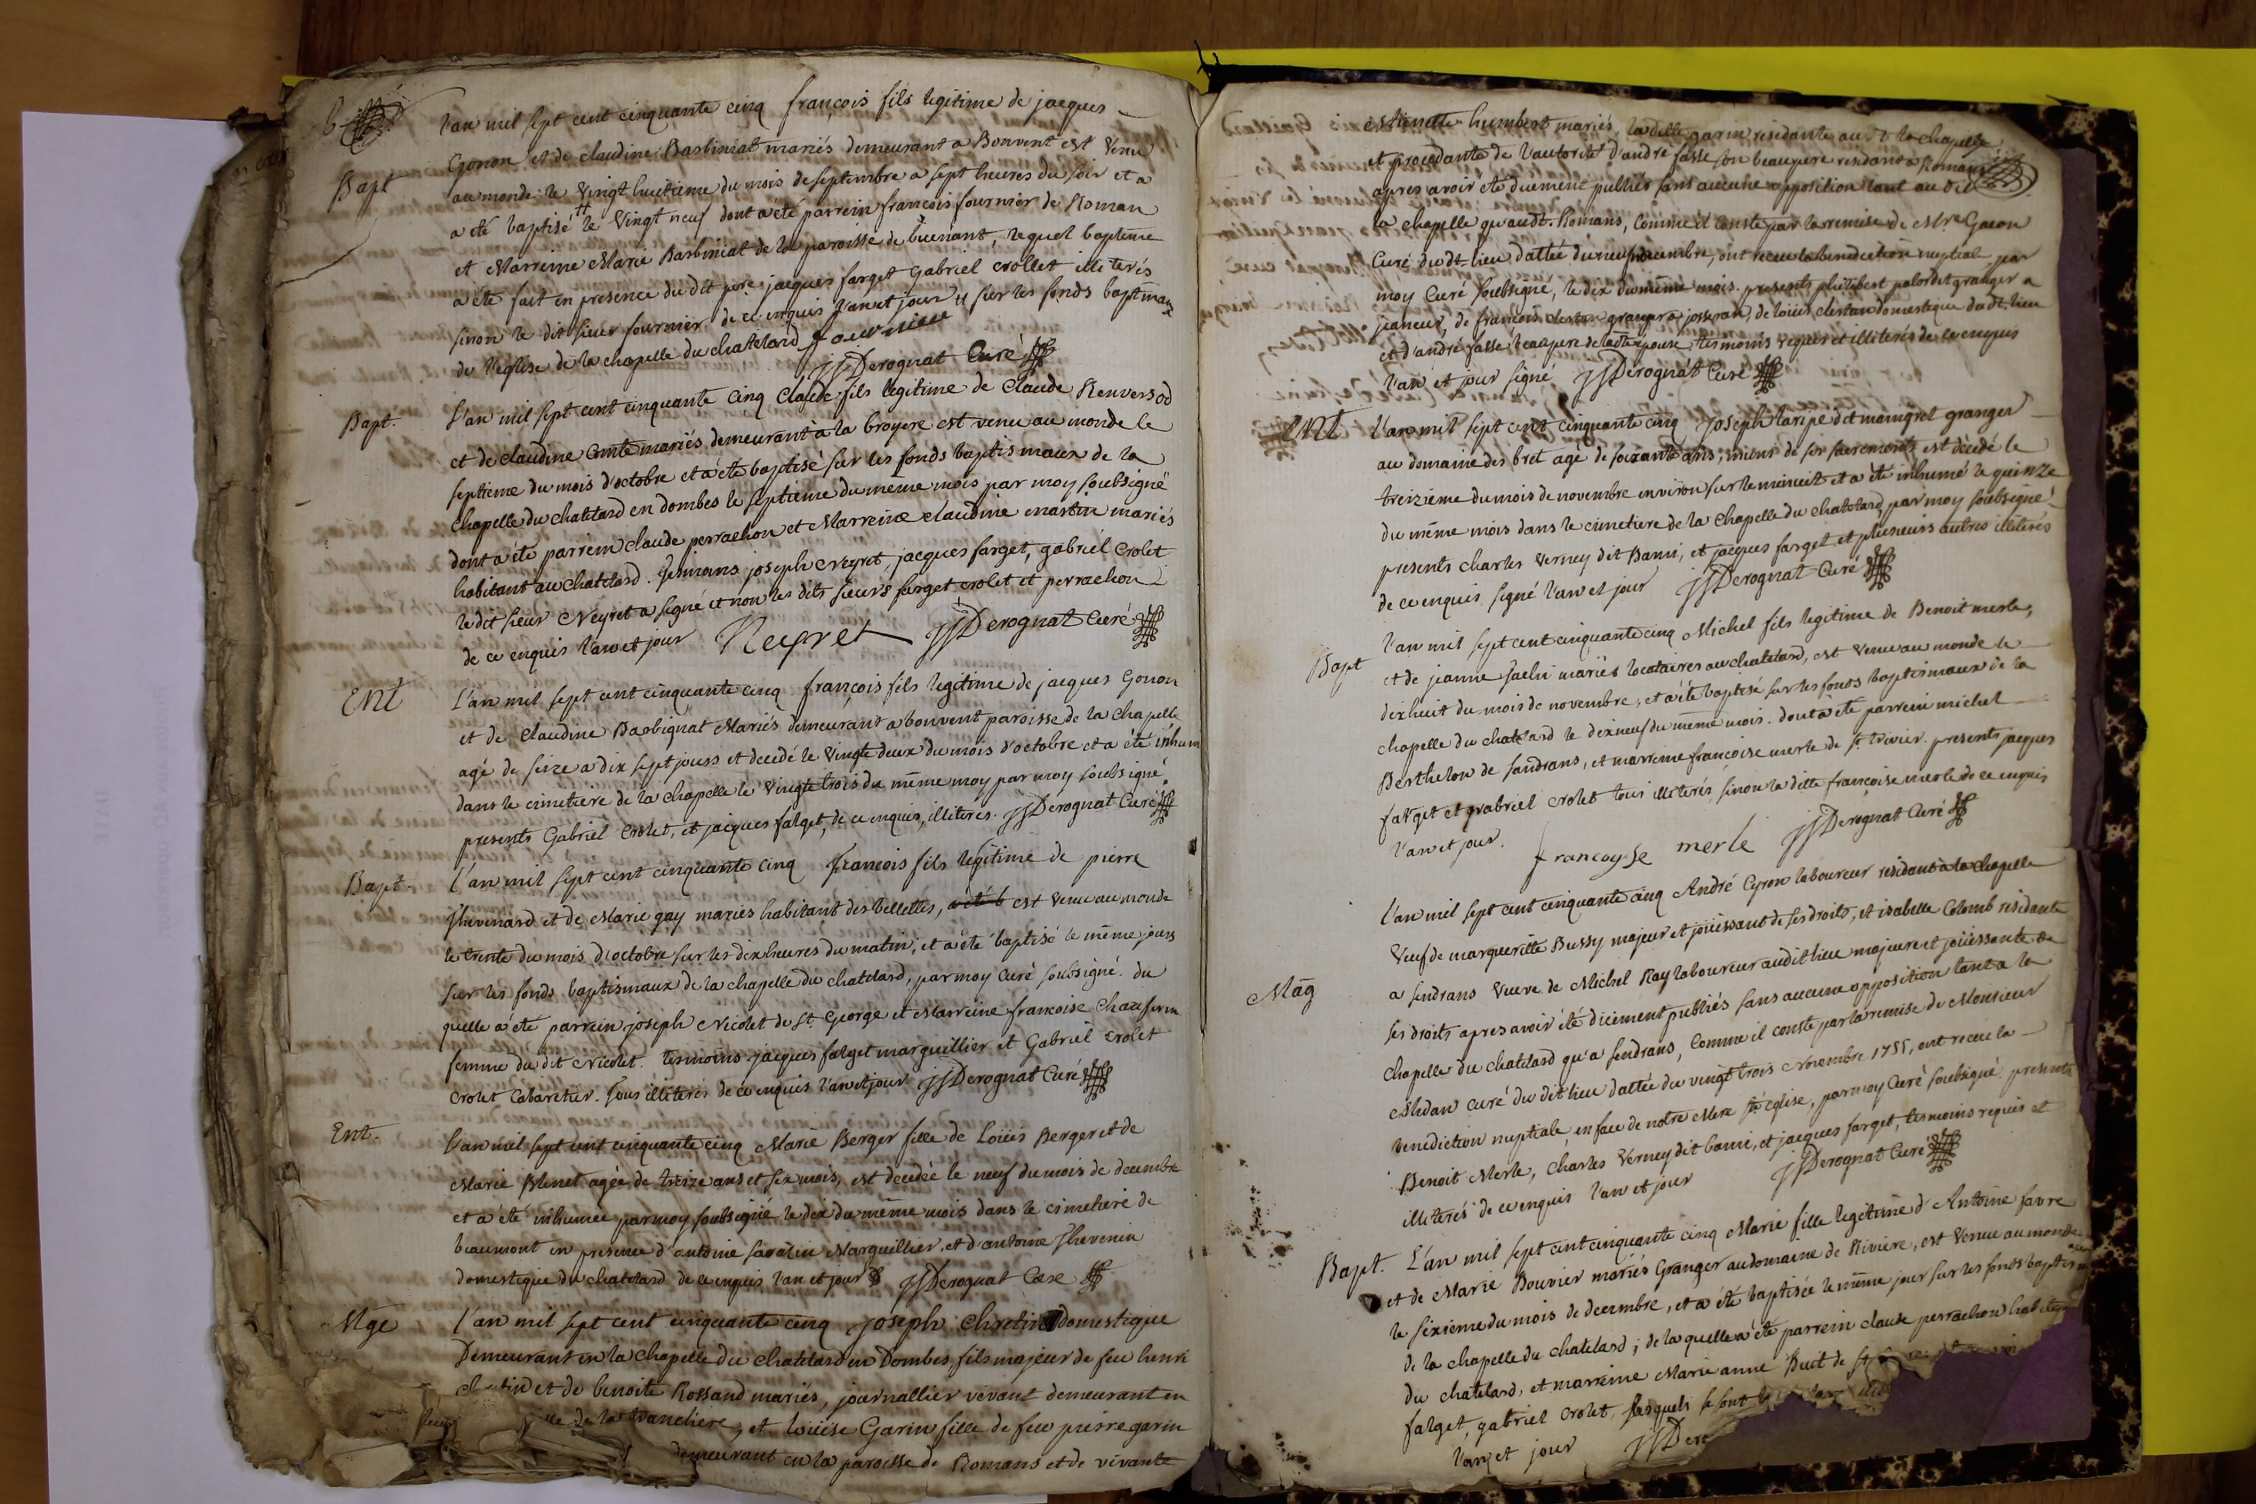 Bapt
l'an mil sept cent cinquante cinq françois fils legitime de jacques
Gonon et de claudine Barbiniat mariés demeurant a Bonvent est venu
au monde le vingt huitieme du mois de septembre a sept heures du soir et a
a été baptisé le vingt neuf dont a été parrein francois fournier de Roman
et Marreine Marie Barbiniat de la paroisse de buenant, lequel baptême
a été fait en presence du dit pere, jacques farget Gabriel crollet illiterés
sinon le dit sieur fournier de ce enquis l'an et jour sur les fonds baptimaux
de l'eglise de la chapelle du chatelard fournier
JJDerognat Curé
Bapt.
L'an mil sept cent cinquante cinq Claude fils legitime de Claude Renversod
et de claudine Comte mariés demeurant a la broyere est venu au monde le
septieme du mois d'octobre et a été baptisé sur les fonds baptismaux de la
chapelle du chatelard en dombes le septieme du même mois par moy soubsigné
dont a été parrein claude perrachon et Marreine claudine martin mariés
habitant au chatelard. temoins joseph Neyret, jacques farget, gabriel Crolet
le dit sieur Neyret a signé et non les dits sieurs farget crolet et perrachon
de ce enquis l'an et jour Neyret JJDerognat Curé
Ent
L'an mil sept cent cinquante cinq françois fils legitime de jacques Gonon
et de Claudine Barbignat Mariés demeurant a bonvent paroisse de la chapelle
agé de seize a dix sept jours et decedé le vingte deux du mois d'octobre et a été inhum
dans le cimetiere de la chapelle le vingte trois du même moy par moy soubsigné.
presents Gabriel Crolet, et jacques farget, de ce enquis, illiterés. JJDerognat Curé
Bapt.
l'an mil sept cent cinquante cinq francois fils legitime de pierre
thevenard et de Marie gay mariés habitant des bellettes, a été b est venu au monde
le trente du mois d'octobre sur les dix heures du matin; et a été baptisé le même jours
sur les fonds baptismaux de la chapelle du chatelard, par moy Curé soubsigné. du
quelle a été parrein joseph Nicolet de St. George et Marreine francoise
femme du dit Nicolet. temoins jacques farget marguillier et Gabriel crolet
crolet Cabaretier. tous illiterés de ce enquis l'an et jour JJDerognat Curé
Ent.
l'an mil sept cent cinquante cinq Marie Berger fille de Loüis Berger et de
Marie Blenet agée de treize ans et six mois, est decedée le neuf du mois de decembre
et a été inhumée par moy soubsigné le dix du même mois dans le cimetiere de
beaumont en presence d'antoine savarin Marguillier, et d'antoine thevenin
domestique du chatelard de ce enquis l'an et jour JJDerognat Curé
Mge
l'an mil sept cent cinquante cinq joseph domestique
Demeurant en la chapelle du chatelard en Dombes fils majeur de feu henri
et de benoite Rossand mariés, journallier vivant demeurant en
de la tranchiere, et loüise Garin fille de feu pierre garin
demeurant en la paroisse de Romans et de vivante
estiennette humbert mariés, la ditte garin residante au dt la chapelle
et procedante de l'autorité d'andré fasse son beaupere residant a Romans
apres avoir eté duement publiés sans aucune opposition tant au dit
la chapelle qu'audt. Romans, comme il conste par la remise de Mre Gacon
Curé dudt. lieu dattée du neuf novembre, ont receu la benediction nuptiale par
moy Curé soubsigné, le dix du même mois. presents philibert granger a
jeaneur, de francois granger a josserand, de loüis domestique dudt. lieu
et d'andré fasse beaupere de ladte epouse, temoins requis et illiterés de ce enquis
l'an et jour signé JJDerognat Curé
Ent
l'an mil sept cent cinquante cinq joseph taripe dit maingret granger
au domaine des bret agé de soixante ans, muni de ses sacrements est decedé le
treizieme du mois de novembre environ sur le minuit et a été inhumé le quinze
du même mois dans le cimetiere de la chapelle du chatelard par moy soubsigné.
presents charles verney dit Bami, et jacques farget et plusieurs autres illiterés
de ce enquis signé l'an et jour JJDerognat Curé
Bapt
l'an mil sept cent cinquante cinq Michel fils legitime de Benoit merle,
et de jeanne mariés locataires au chatelard, est venu au monde le
dixhuit du mois de novembre, et a été baptisé sur les fonds baptismaux de la
chapelle du chatelard le dix neuf du même mois. dont a été parrein michel
Berthelon de sandrans, et marreine françoise merle de St. trivier. presents jacques
farget et grabriel crolet tous illiterés sinon la ditte françoise merle de ce enquis
l'an et jour. francoyse merle JJDerognat Curé
Mag
l'an mil sept cent cinquante cinq André Cyron laboureur residant à la chapelle
veuf de marguerite Bussy majeur et joüissant de ses droits, et isabelle Colomb residante
a sendrans veuve de Michel Ray laboureur audit lieu majeure et joüissante de
ses droits apres avoir été diüement publiés sans aucune opposition tant a la
chapelle du chatelard qu'a sendrans, Comme il conste par la remise de Monsieur
Curé du dit lieu dattée du vingt trois Novembre 1755, ont receu la
benediction nuptiale, en face de notre Mere ste Eglise, par moy Curé soubsigné. presents
Benoit Merle, Charles Verney dit bami, et jacques farget, temoins requis et
illiterés de ce enquis l'an et jour JJDerognat Curé
Bapt.
L'an mil sept cent cinquante cinq Marie fille legitime d'Antoine favre
et de Marie Bouvier mariés Granger au domaine de Riviere, est venue au monde
le sixieme du mois de decembre, et a été baptisée le même jour sur les fonds baptis
de la chapelle du chatelard; de la quelle a été parrein claude perrachon
du chatelard, et marreine Marie anne Buit de
farget, gabriel crolet, lesquels se sont
l'an et jour JJDero